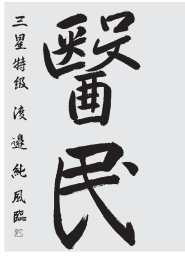 醫民
三星特級 渡邊純風臨